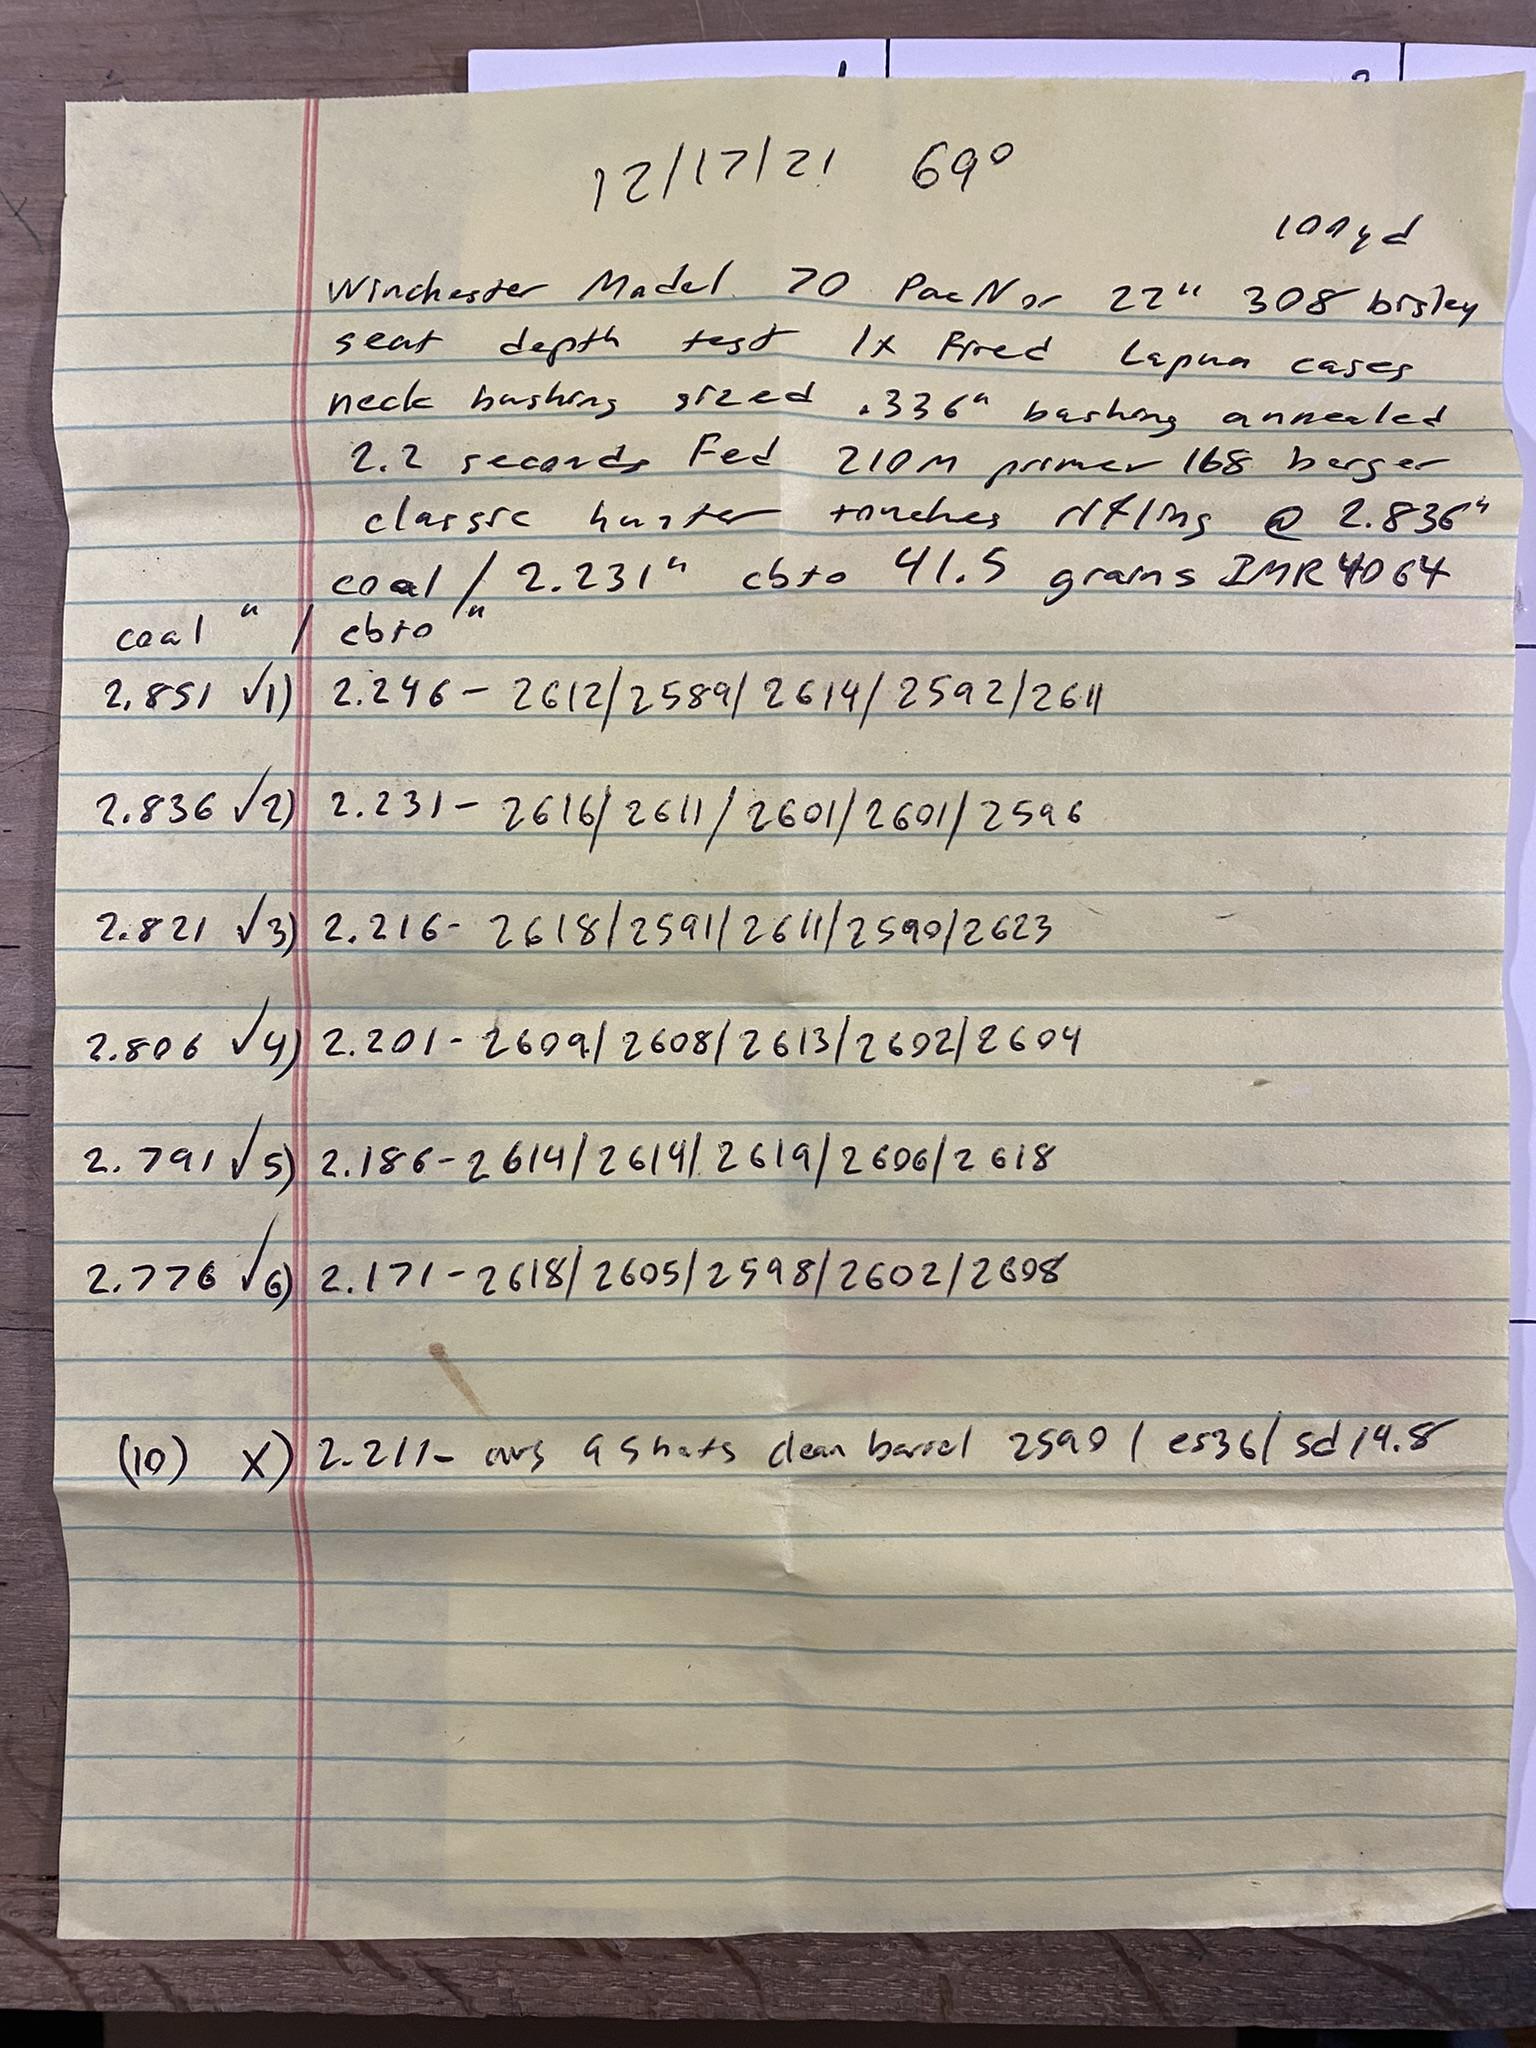 12/17/21 69°
100yd
Winchester Model 70 PacNor 22" 308 bisley
seat depth test 1x Fired Lapua cases
neck bushing sized .336" bushing annealed
2.2 seconds Fed 210M primer 168 berger
classic hunter touches rifling @ 2.836"
coal / 2.231" cbto 41.5 grains IMR 4064
coal " / cbto "
2.851 √1) 2.246- 2612/2589/2614/2592/2611
2.836 √2) 2.231- 2616/2611/2601/2601/2596
2.821 √3) 2.216- 2618/2591/2611/2590/2623
2.806 √4) 2.201- 2609/2608/2613/2602/2604
2.791 √5) 2.186-2614/2614/2619/2606/2618
2.776 √6) 2.171-2618/2605/2598/2602/2608
(10) x) 2.211- avg 9 shots clean barrel 2590 / es36/ sd 14.8